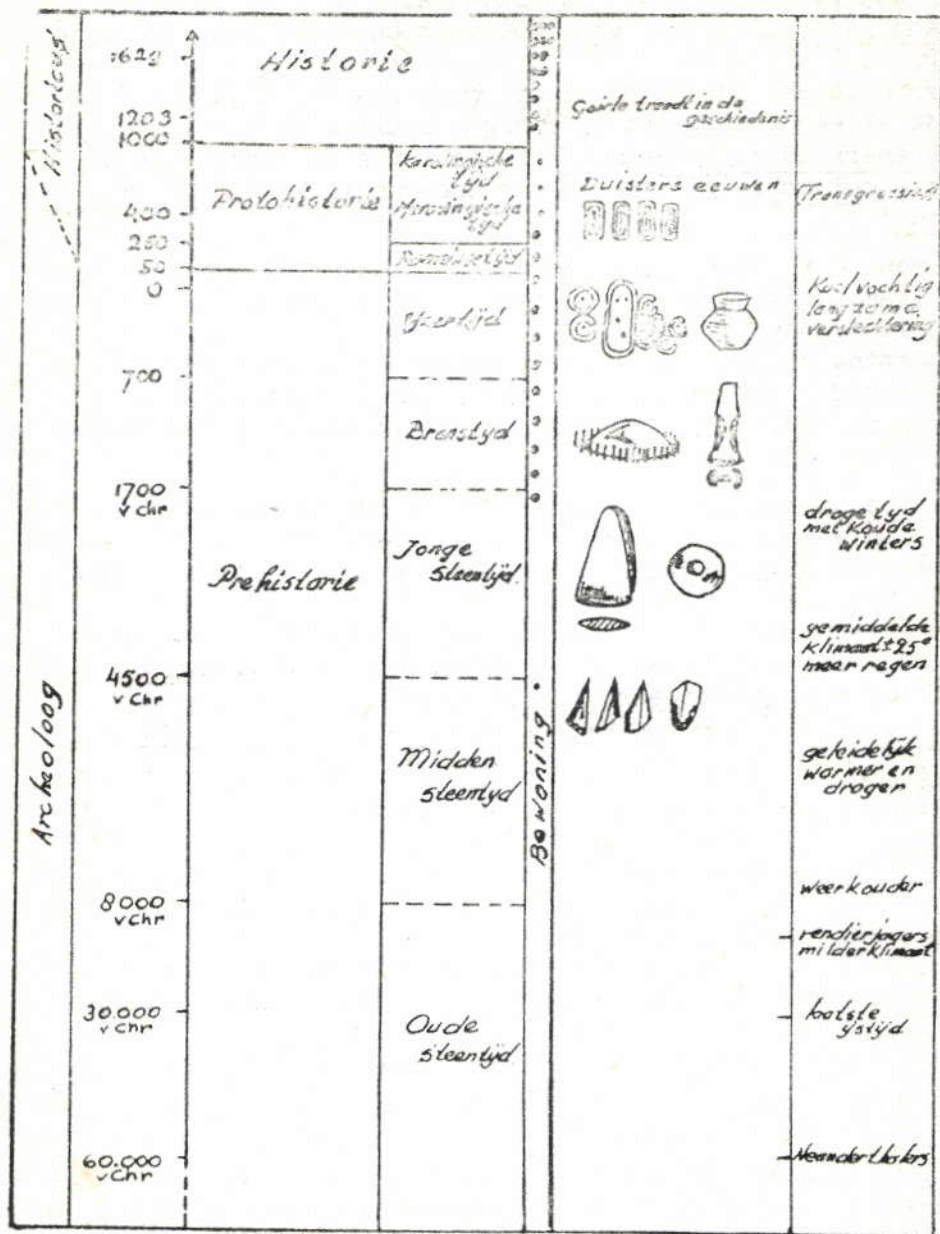 Historicus
Archeoloog
1629
1203
1000
400
250
50
0
700
1700
v Chr
4500
v Chr
8000
v Chr
30.000
v Chr
60.000
v Chr
Historie
Protohistorie
Prehistorie
Karolingische
tyd
Merovingische
tyd
Romeinse tijd
Yzertijd
Bronstyd
Jonge
steentijd.
Midden
steentyd
Oude
steentyd
Bewoning
Goirle treedt in de
geschiedenis
Duistere eeuwen
Transgressies
Koel vochtig
langzame
verslechtering
droge tyd
met koude
winters
gemiddelde
klimaat ± 25°
meer regen
geleidelijk
warmer en
droger
weer kouder
rendierjagers
milder klimaat
laatste
ystyd
Neanderthalers